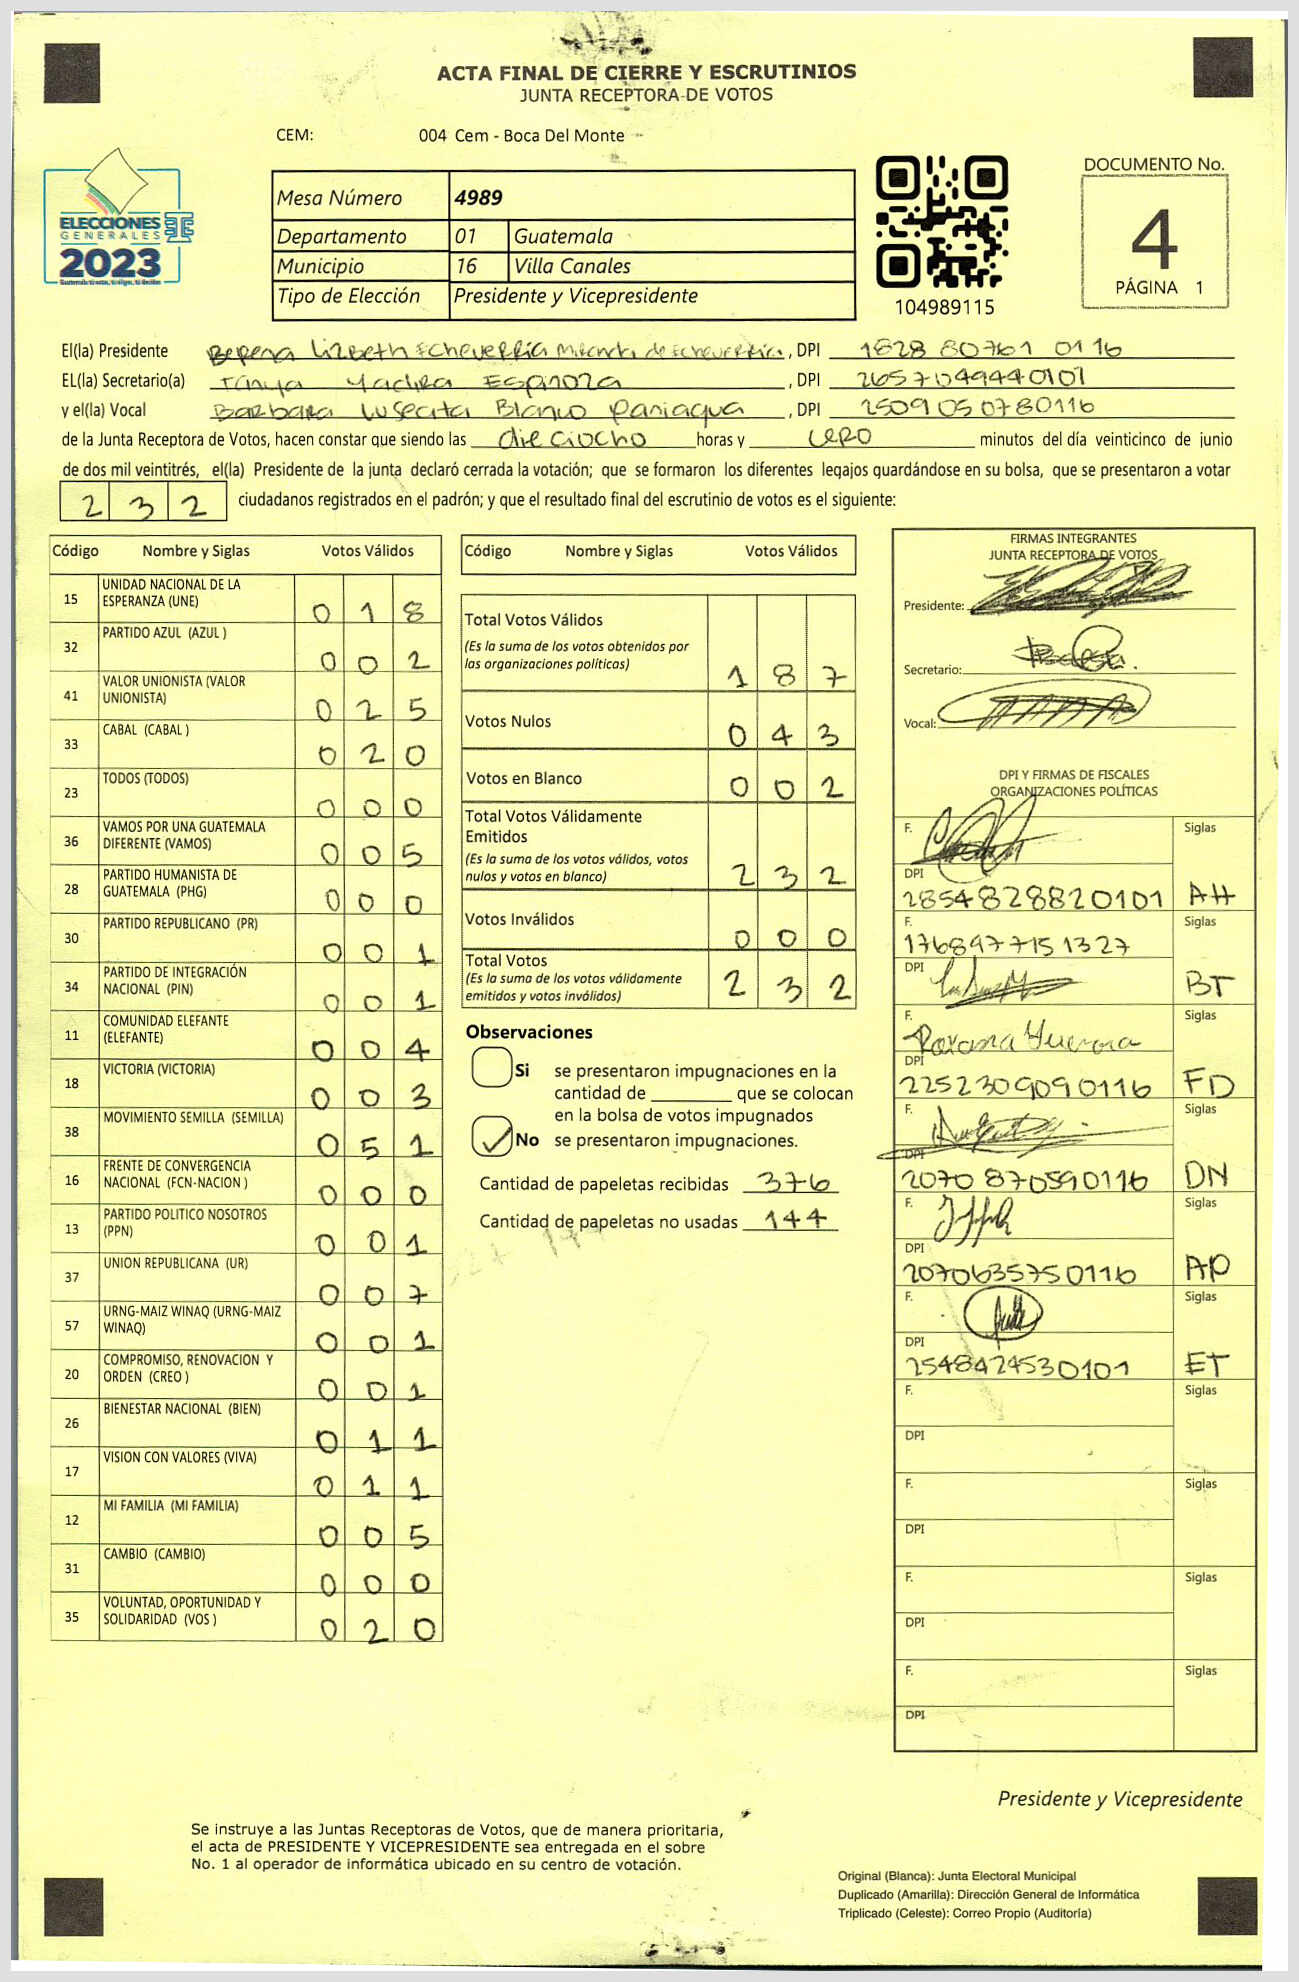 ACTA FINAL DE CIERRE Y ESCRUTINIOS
JUNTA RECEPTORA DE VOTOS
CEM: 004 Cem - Boca Del Monte
DOCUMENTO No.
4
PÁGINA 1
ELECCIONES
GENERALES
2023
Mesa Número 4989
Departamento 01 Guatemala
Municipio 16 Villa Canales
Tipo de Elección Presidente y Vicepresidente
104989115
El(la) Presidente Berena Lizbeth Echeverria Miranda de Echeverria, DPI 1828 80761 0116
EL(la) Secretario(a) Tanya Yadira Espinoza , DPI 2657049440101
y el(la) Vocal Barbara Blanco Paniagua , DPI 2509 05078 0116
de la Junta Receptora de Votos, hacen constar que siendo las dieciocho horas y cero minutos del día veinticinco de junio
de dos mil veintitrés, el(la) Presidente de la junta declaró cerrada la votación; que se formaron los diferentes legajos guardándose en su bolsa, que se presentaron a votar
2 3 2 ciudadanos registrados en el padrón; y que el resultado final del escrutinio de votos es el siguiente:
Código Nombre y Siglas Votos Válidos
15 UNIDAD NACIONAL DE LA
ESPERANZA (UNE) 0 1 8
32 PARTIDO AZUL (AZUL ) 0 0 2
41 VALOR UNIONISTA (VALOR
UNIONISTA) 0 2 5
33 CABAL (CABAL ) 0 2 0
23 TODOS (TODOS) 0 0 0
36 VAMOS POR UNA GUATEMALA
DIFERENTE (VAMOS) 0 0 5
28 PARTIDO HUMANISTA DE
GUATEMALA (PHG) 0 0 0
30 PARTIDO REPUBLICANO (PR) 0 0 1
34 PARTIDO DE INTEGRACIÓN
NACIONAL (PIN) 0 0 1
11 COMUNIDAD ELEFANTE
(ELEFANTE) 0 0 4
18 VICTORIA (VICTORIA) 0 0 3
38 MOVIMIENTO SEMILLA (SEMILLA) 0 5 1
16 FRENTE DE CONVERGENCIA
NACIONAL (FCN-NACION ) 0 0 0
13 PARTIDO POLITICO NOSOTROS
(PPN) 0 0 1
37 UNION REPUBLICANA (UR) 0 0 7
57 URNG-MAIZ WINAQ (URNG-MAIZ
WINAQ) 0 0 1
20 COMPROMISO, RENOVACION Y
ORDEN (CREO ) 0 0 1
26 BIENESTAR NACIONAL (BIEN) 0 1 1
17 VISION CON VALORES (VIVA) 0 1 1
12 MI FAMILIA (MI FAMILIA) 0 0 5
31 CAMBIO (CAMBIO) 0 0 0
35 VOLUNTAD, OPORTUNIDAD Y
SOLIDARIDAD (VOS ) 0 2 0
Código Nombre y Siglas Votos Válidos
Total Votos Válidos
(Es la suma de los votos obtenidos por
las organizaciones políticas) 1 8 7
Votos Nulos 0 4 3
Votos en Blanco 0 0 2
Total Votos Válidamente
Emitidos
(Es la suma de los votos válidos, votos
nulos y votos en blanco) 2 3 2
Votos Inválidos 0 0 0
Total Votos
(Es la suma de los votos válidamente
emitidos y votos inválidos) 2 3 2
Observaciones
Si se presentaron impugnaciones en la
cantidad de ________ que se colocan
en la bolsa de votos impugnados
No se presentaron impugnaciones.
Cantidad de papeletas recibidas 376
Cantidad de papeletas no usadas 144
FIRMAS INTEGRANTES
JUNTA RECEPTORA DE VOTOS
Presidente:
Secretario:
Vocal:
DPI Y FIRMAS DE FISCALES
ORGANIZACIONES POLÍTICAS
F. Siglas
DPI
2854828820101 AH
F. Siglas
1768977151327
DPI
BT
F. Siglas
Roxana Guerora
DPI
2252309090116 FD
F. Siglas
DPI
2070 870590116 DN
F. Siglas
DPI
2070635750116 AP
F. Siglas
DPI
2548424530101 ET
F. Siglas
DPI
F. Siglas
DPI
F. Siglas
DPI
F. Siglas
DPI
Presidente y Vicepresidente
Se instruye a las Juntas Receptoras de Votos, que de manera prioritaria,
el acta de PRESIDENTE Y VICEPRESIDENTE sea entregada en el sobre
No. 1 al operador de informática ubicado en su centro de votación.
Original (Blanca): Junta Electoral Municipal
Duplicado (Amarilla): Dirección General de Informática
Triplicado (Celeste): Correo Propio (Auditoría)